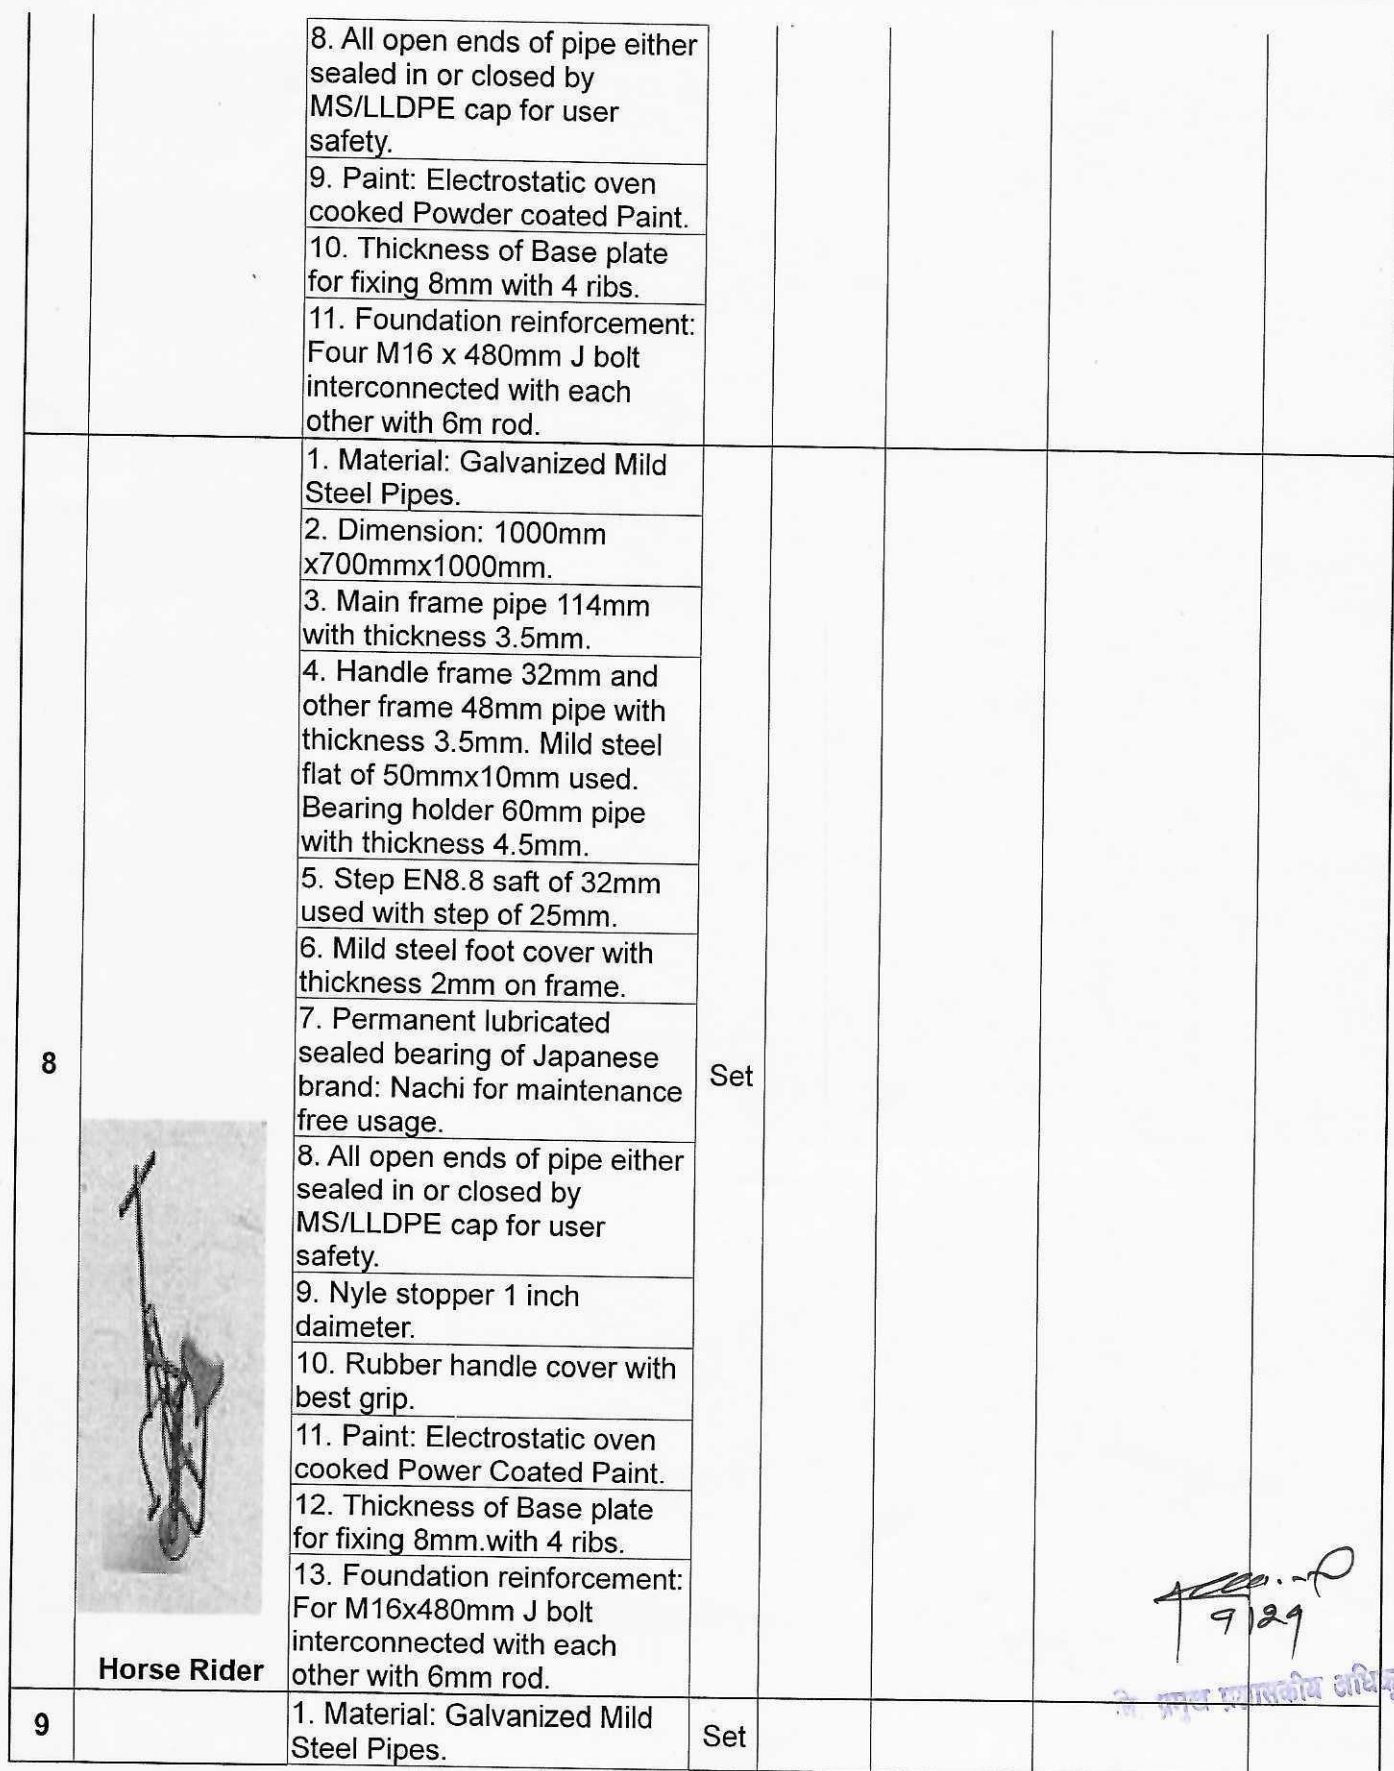 8. All open ends of pipe either
sealed in or closed by
MS/LLDPE cap for user
safety.
9. Paint: Electrostatic oven
cooked Powder coated Paint.
10. Thickness of Base plate
for fixing 8mm with 4 ribs.
11. Foundation reinforcement:
Four M16 x 480mm J bolt
interconnected with each
other with 6m rod.
8
Horse Rider
1. Material: Galvanized Mild
Steel Pipes.
2. Dimension: 1000mm
x700mmx1000mm.
3. Main frame pipe 114mm
with thickness 3.5mm.
4. Handle frame 32mm and
other frame 48mm pipe with
thickness 3.5mm. Mild steel
flat of 50mmx10mm used.
Bearing holder 60mm pipe
with thickness 4.5mm.
5. Step EN8.8 saft of 32mm
used with step of 25mm.
6. Mild steel foot cover with
thickness 2mm on frame.
7. Permanent lubricated
sealed bearing of Japanese
brand: Nachi for maintenance
free usage.
8. All open ends of pipe either
sealed in or closed by
MS/LLDPE cap for user
safety.
9. Nyle stopper 1 inch
daimeter.
10. Rubber handle cover with
best grip.
11. Paint: Electrostatic oven
cooked Power Coated Paint.
12. Thickness of Base plate
for fixing 8mm.with 4 ribs.
13. Foundation reinforcement:
For M16x480mm J bolt
interconnected with each
other with 6mm rod.
Set
प्रमुख प्रशासकीय
9
1. Material: Galvanized Mild
Steel Pipes.
Set